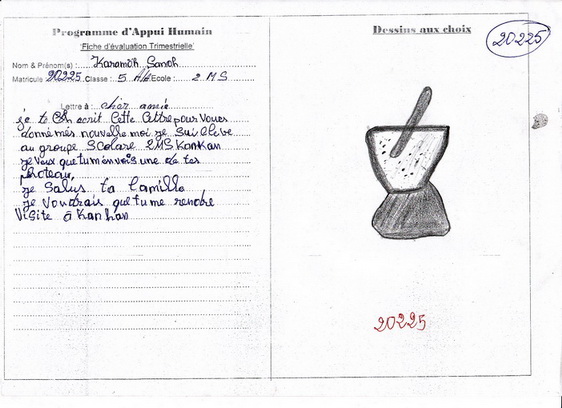 Programme d'Appui Humain
'Fiche d'évaluation Trimestrielle'
Nom & Prénom(s) : Karamôh Sanoh
Matricule 20225 Classe : 5 A/4 Ecole : 2 MS
Lettre à : chèr amie
je te écrit cette lettre pour vous
donné més nouvelle moi je sui élève
au groupe scolare 2MS Kankan
je veux que tu m'envois une de tes
photeau,
je salus ta famille
je voudrais que tu me rendre
visite à Kankan
Dessins aux choix
20225
20225